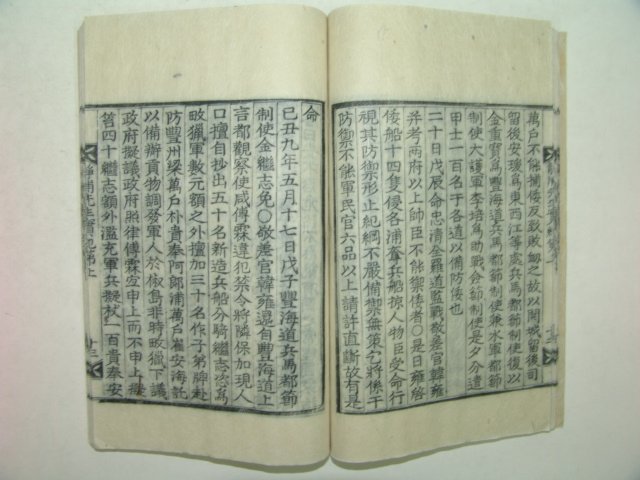 萬戶不能捕倭反致敗䘐之故以開城留後司
留後安瑗爲東西江等處兵馬都節制使
金重寶爲豐海道兵馬都節制使兼水軍都節
制使大護軍李培爲助戰僉節制使是夕分遣
甲士一百名于各道以備防倭也
二十日戊辰命忠清全羅道監戰敬差官韓雍
并考兩府以上帥臣不能禦倭者○是日雍啓
倭船十四隻侵各浦奪兵船掠人物臣受命行
視其防禦形止紀綱不嚴備禦無策乞將係干
防禦不能軍民官六品以上請許直斷故有是
命
己丑九年五月十七日戊子豐海道兵馬都節
制使金繼志免○敬差官韓雍還自豐海道上
言都觀察使咸傅霖違犯禁令將隣保加現人
口擅自抄出五十名新造兵船分騎繼志恣爲
畋獵軍數元額之外擅加三十名作子弟牌赴
防豐州梁萬戶朴貴奉阿郎浦萬戶崔安海託
以備辦貢物調發軍人於椒島非時畋獵下議
政府擬議政府照律傅霖宜申上而不申上擬
笞四十繼志額外濫充軍兵擬杖一百貴奉安
先生實記 上
十三